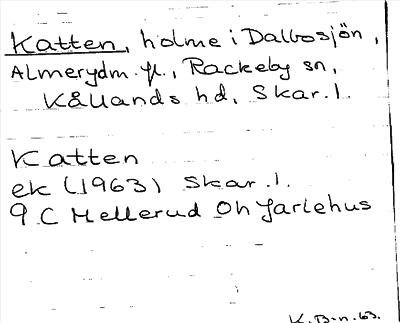 Katten, holme i Dalbosjön,
Almerydm. fl., Rackeby sn,
Kållands hd, Skar.l.
Katten
ek (1963) Skar.l.
9 C Mellerud Oh Jarlehus
K.B-n.63.